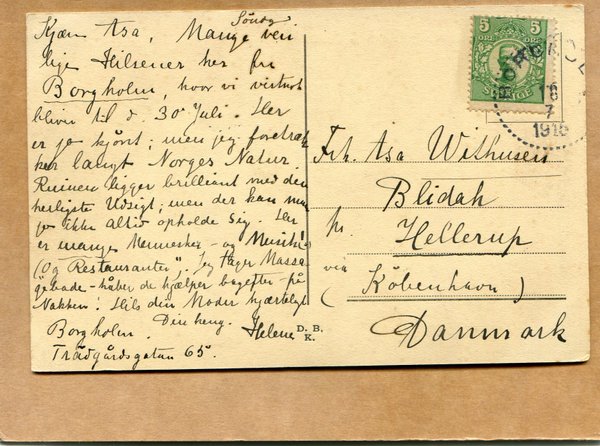 Søndag
Kjære Asa, Mange ven
lige Hilsener her fra
Borgholm, hvor vi
bliver til d. 30' Juli. Her
er jo kjønt; men jeg foretræk
ker langt Norges Natur.
Ruinen ligger brilliant med den
herligste Udsigt; men der kan man
jo ikke altid opholde sig. Her
er mange Mennesker - og Musik!
(Og Restauranter". Jeg tager Massa
gebade - håber de hjælper bagefter - på
Nakken! Hils din Moder hjærteligt
Din heng. Helene
Borgholm.
Trädgårdsgatan 65.
D. B.
K.
5 5
SVERIGE
BORGHOLM
16
7
1915
Frk. Asa Withusen
Blidah
pr. Hellerup
(via København)
Danmark